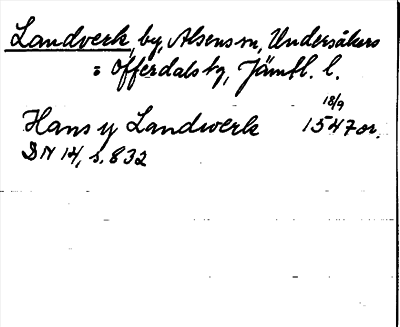 Landverk, by, Alsens sn, Undersåkers
= Offerdals tg, Jämtl. l.
18/9
Hans y Landwerk 1547 or.
DN 14, s. 832